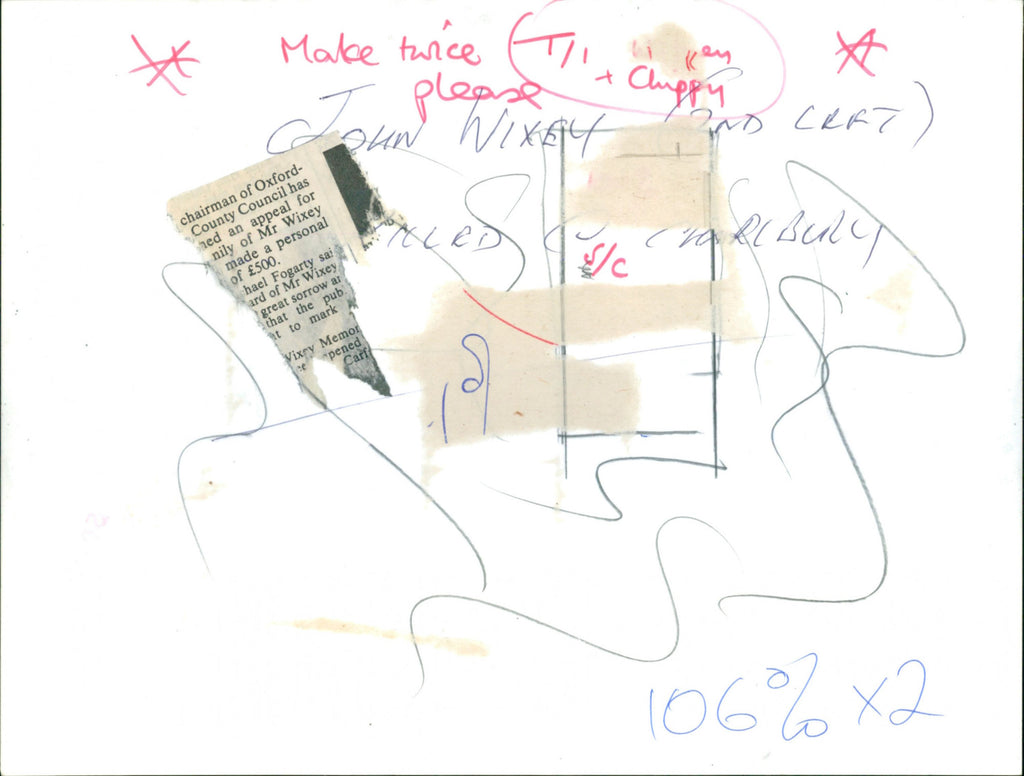 Make twice
please
T/I
+ Chippy
JOHN WIXEY (2ND LEFT)
KILLED IN CHARLBURY
S/C
chairman of Oxford-
County Council has
ned an appeal for
nily of Mr Wixey
made a personal
of £500.
hael Fogarty sai
ard of Mr Wixey
great sorrow ar
that the pub
t to mark
Wixey Memor
pened
Carf
106% x2